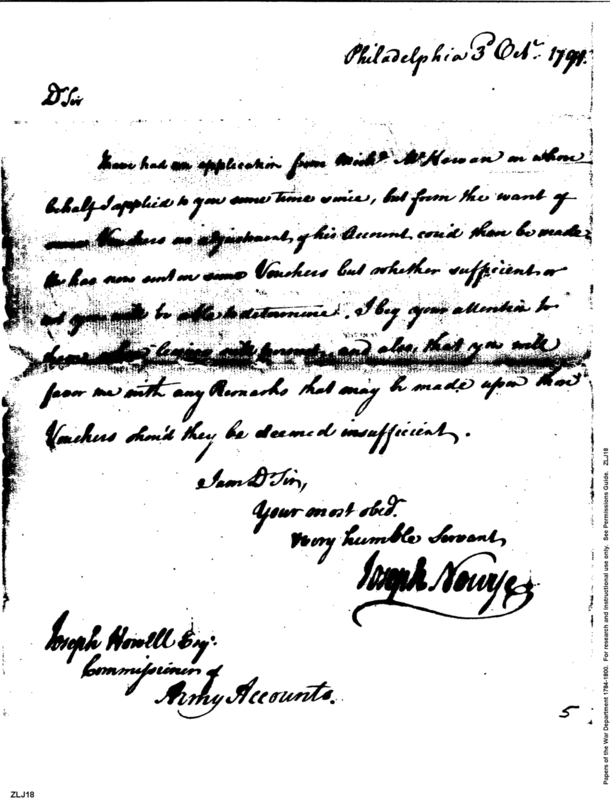 Philadelphia 3d Octr. 1791.
Dr Sir
I have had an application from Michl. McKowan on whose
behalf I applied to you some time since, but form the want of
some Vouchers no adjustment of his Account could then be made
He has now sent on some Vouchers but whether sufficient or
not you will be able to determine. I beg your attention to
them when leisure will permit, and also, that you will
favor me with any Remarks that may be made upon those
Vouchers shou'd they be deemed insufficient.
I am Dr Sir,
Your most obed.
very humble Servant
Joseph Nourse
Joseph Howell Esqr.
Commissioner of
Army Accounts.
5
ZLJ18
Papers of the War Department 1784-1800. For research and instructional use only. See Permissions Guide. ZLJ18